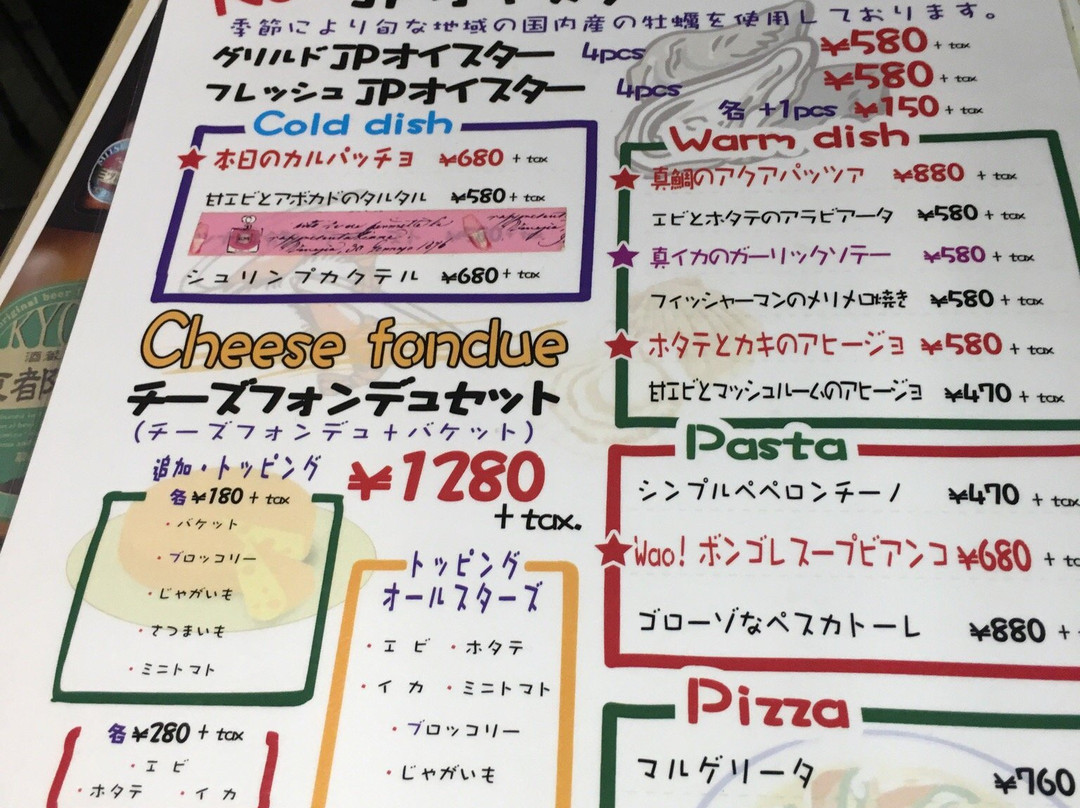 季節により旬な地域の国内産の牡蠣を使用しております。
グリルドJPオイスター 4pcs ¥580 + tax
フレッシュJPオイスター 4pcs ¥580 + tax
各 +1pcs ¥150 + tax
Cold dish
★本日のカルパッチョ ¥680 + tax
甘エビとアボカドのタルタル ¥580 + tax
シュリンプカクテル ¥680 + tax
Warm dish
★真鯛のアクアパッツァ ¥880 + tax
エビとホタテのアラビアータ ¥580 + tax
★真イカのガーリックソテー ¥580 + tax
フィッシャーマンのメリメロ焼き ¥580 + tax
★ホタテとカキのアヒージョ ¥580 + tax
甘エビとマッシュルームのアヒージョ ¥470 + tax
Cheese fondue
チーズフォンデュセット
(チーズフォンデュ+バケット)
¥1280
+ tax.
追加・トッピング
各 ¥180 + tax
・バケット
・ブロッコリー
・じゃがいも
・さつまいも
・ミニトマト
各 ¥280 + tax
・エビ
・ホタテ ・イカ
トッピング
オールスターズ
・エビ ・ホタテ
・イカ ・ミニトマト
・ブロッコリー
・じゃがいも
Pasta
シンプルペペロンチーノ ¥470 + tax
★Wao! ボンゴレスープビアンコ ¥680 +
ゴローゾなペスカトーレ ¥880 +
Pizza
マルゲリータ ¥760
original beer